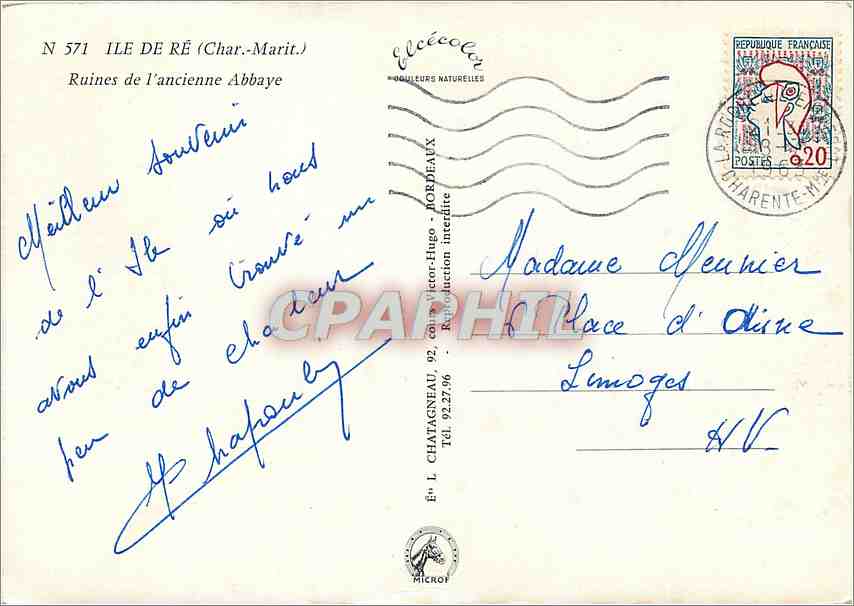 N 571 ILE DE RÉ (Char.-Marit.)
Ruines de l'ancienne Abbaye
Elcécolor
COULEURS NATURELLES
REPUBLIQUE FRANÇAISE
POSTES 0,20
1963
CHARENTE-Mme
Meilleur souvenir
de l'Ile où nous
avons enfin trouvé un
peu de chaleur
Ets L. CHATAGNEAU, 92, cours Victor-Hugo - BORDEAUX
Tél. 92.27.96 - Reproduction interdite
CPAPHIL
Madame Meunier
Place d'Aisne
Limoges
H V.
MICRO